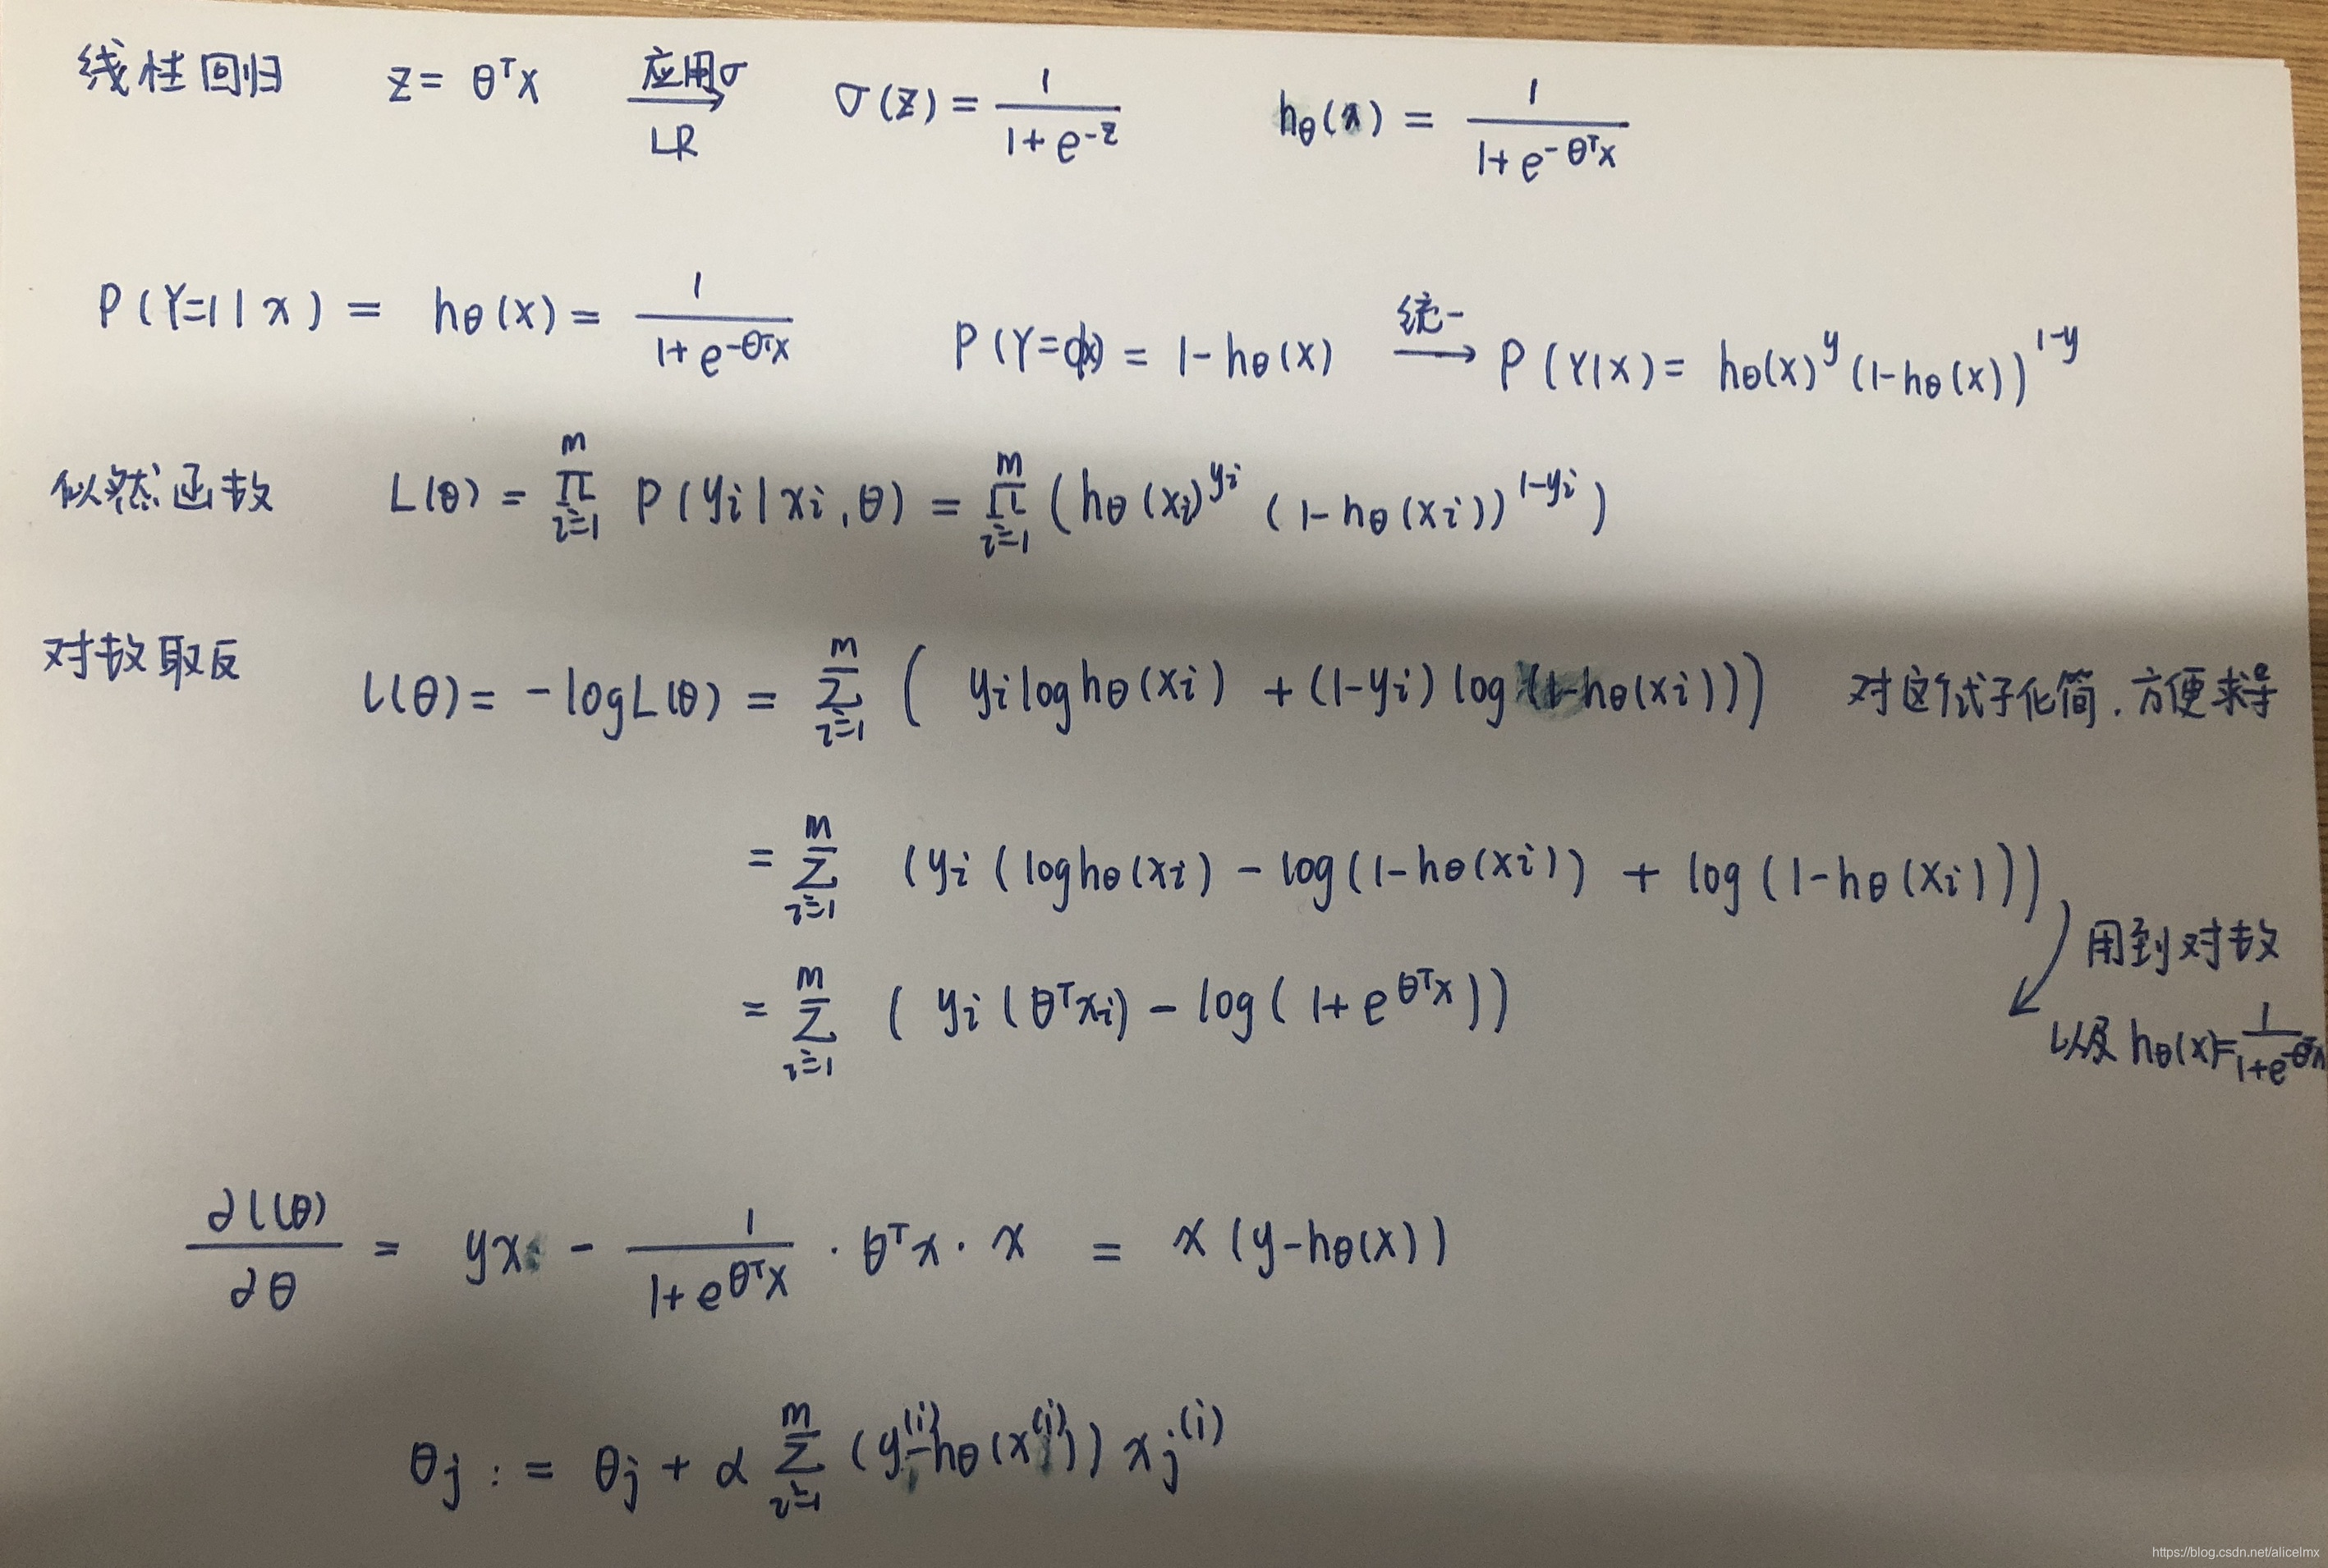 线性回归 z = θᵀx 应用σ → LR σ(z) = 1/(1+e^{-z}) hθ(x) = 1/(1+e^{-θᵀx})
P(Y=1|x) = hθ(x) = 1/(1+e^{-θᵀx}) P(Y=0|x) = 1-hθ(x) 统一 → P(Y|X) = hθ(x)^y (1-hθ(x))^{1-y}
似然函数 L(θ) = ∏_{i=1}^{m} P(yi|xi,θ) = ∏_{i=1}^{m} (hθ(xi)^{yi} (1-hθ(xi))^{1-yi})
对数取反 l(θ) = -logL(θ) = ∑_{i=1}^{m} ( yi loghθ(xi) + (1-yi) log(1-hθ(xi))) 对这个式子化简.方便求导
= ∑_{i=1}^{m} (yi (loghθ(xi) - log(1-hθ(xi)) + log(1-hθ(xi)))
用到对数
= ∑_{i=1}^{m} ( yi (θᵀxi) - log( 1+e^{θᵀx}))
以及 hθ(x)=1/(1+e^{-θᵀx})
∂l(θ)/∂θ = yx - 1/(1+e^{θᵀx}) · θᵀx · x = x (y-hθ(x))
θj := θj + α ∑_{i=1}^{m} (y^{(i)}-hθ(x^{(i)})) xj^{(i)}
https://blog.csdn.net/alicelmx